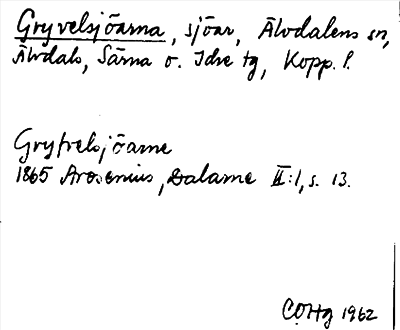 Gryvelsjöarna, sjöar, Älvdalens sn,
Älvdals, Särna o. Idre tg, Kopp. l.
Gryfvelsjöarne
1865 Arosenius, Dalarne II:1, s. 13.
COHg 1962